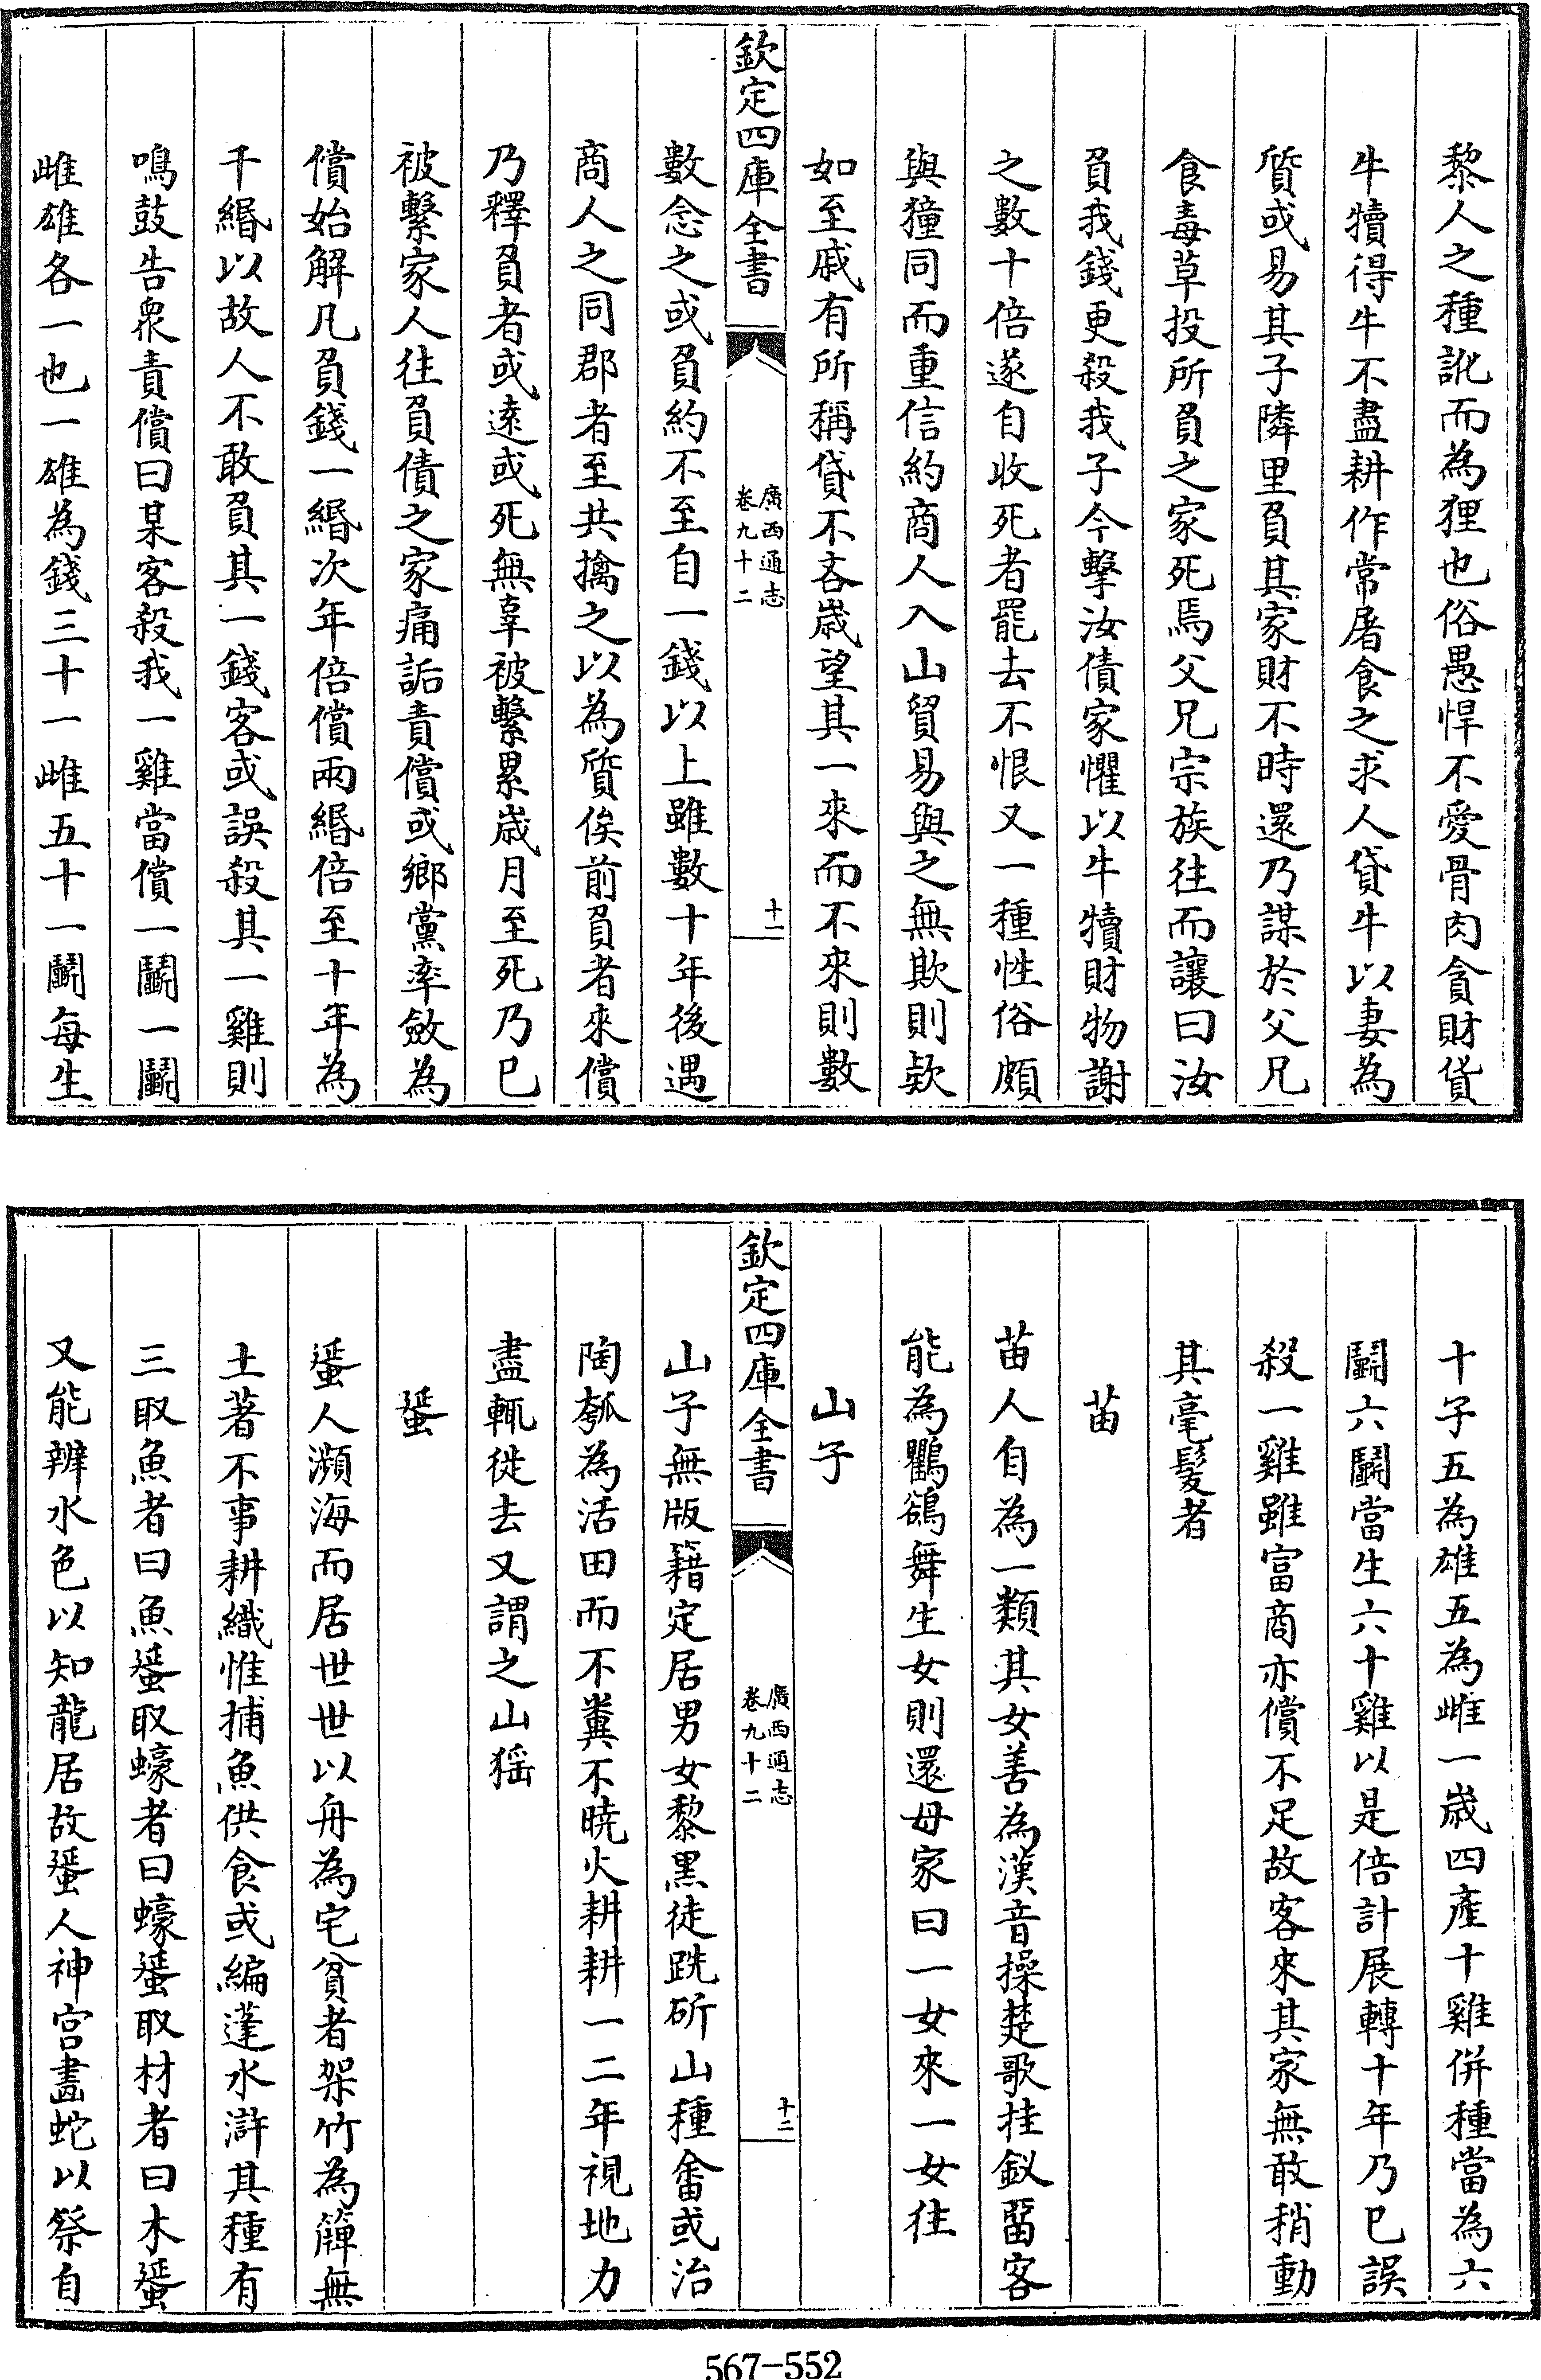 黎人之種訛而為狸也俗愚悍不愛骨肉貪財貨
牛犢得牛不盡耕作常屠食之求人貸牛以妻為
質或易其子隣里負其家財不時還乃謀於父兄
食毒草投所負之家死焉父兄宗族往而讓曰汝
負我錢更殺我子今擊汝債家懼以牛犢財物謝
之數十倍遂自收死者罷去不恨又一種性俗頗
與獞同而重信約商人入山貿易與之無欺則欵
如至戚有所稱貸不吝歲望其一來而不來則數
欽定四庫全書
廣西通志
卷九十二
十一
數念之或負約不至自一錢以上雖數十年後遇
商人之同郡者至共擒之以為質俟前負者來償
乃釋負者或遠或死無辜被繫累歲月至死乃已
被繫家人往負債之家痛詬責償或鄉黨率斂為
償始解凡負錢一緡次年倍償兩緡倍至十年為
千緡以故人不敢負其一錢客或誤殺其一雞則
鳴鼓告衆責償曰某客殺我一雞當償一鬭一鬭
雌雄各一也一雄為錢三十一雌五十一鬭每生
十子五為雄五為雌一歲四產十雞併種當為六
鬭六鬭當生六十雞以是倍計展轉十年乃已誤
殺一雞雖富商亦償不足故客來其家無敢稍動
其毫髮者
苗
苗人自為一類其女善為漢音操楚歌挂釵留客
能為鸜鵒舞生女則還母家曰一女來一女往
山子
欽定四庫全書
廣西通志
卷九十二
十二
山子無版籍定居男女黎黑徒跣斫山種畬或治
陶瓠為活田而不糞不曉火耕耕一二年視地力
盡輒徙去又謂之山猺
蜑
蜑人瀕海而居世世以舟為宅貧者架竹為簰無
土著不事耕織惟捕魚供食或編蓬水滸其種有
三取魚者曰魚蜑取蠔者曰蠔蜑取材者曰木蜑
又能辨水色以知龍居故蜑人神宮畫蛇以祭自
567-552